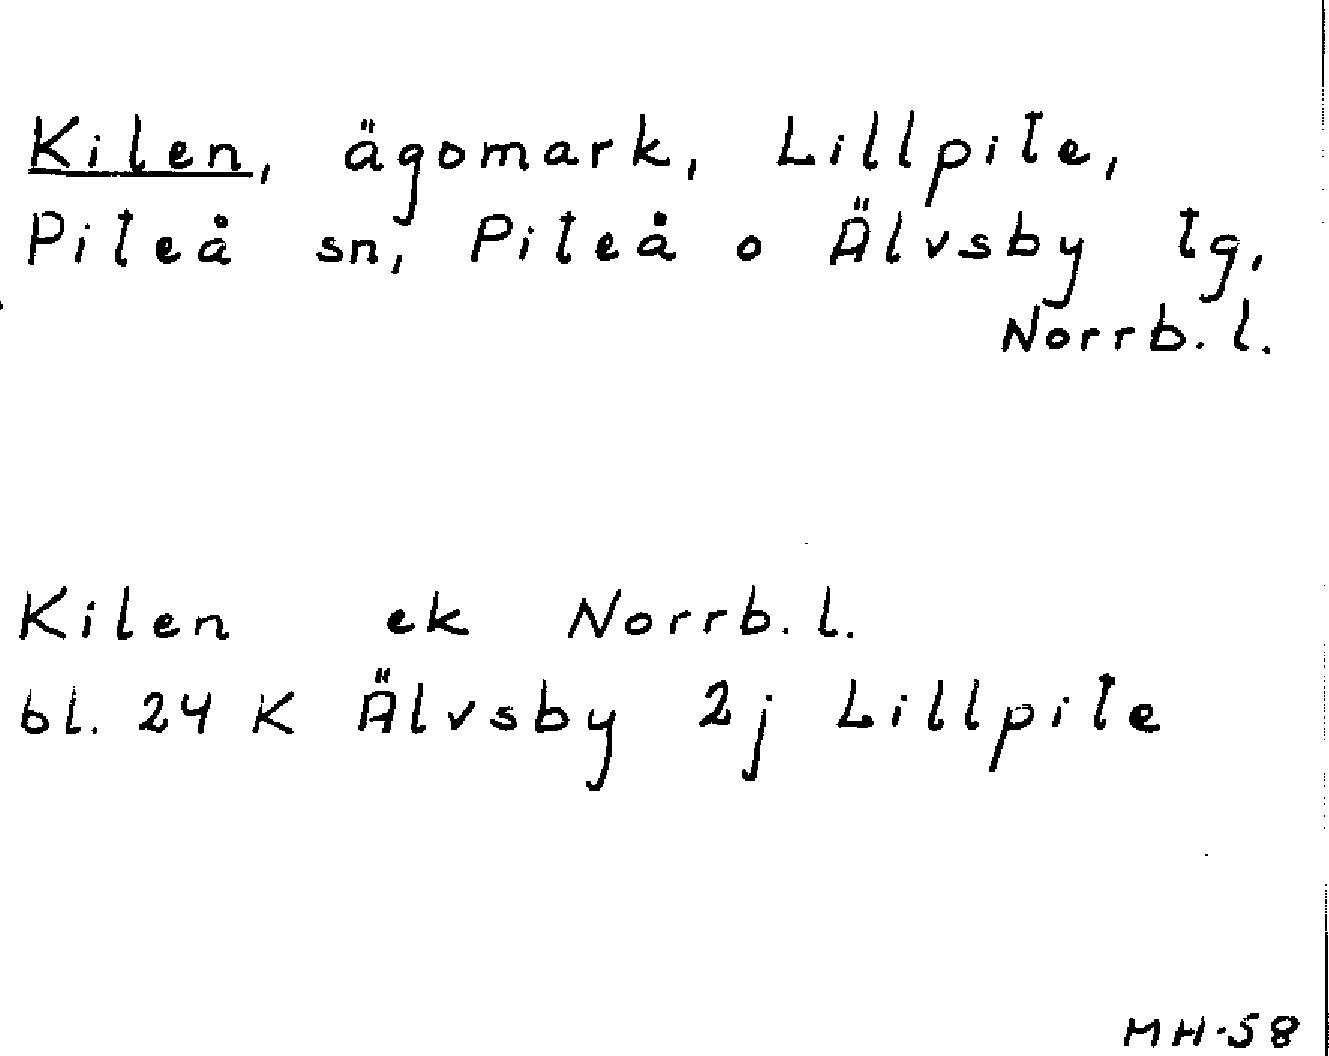 Kilen, ägomark, Lillpite,
Piteå sn, Piteå o Älvsby tg,
Norrb. l.
Kilen ek Norrb. l.
bl. 24 K Älvsby 2j Lillpite
MH-58